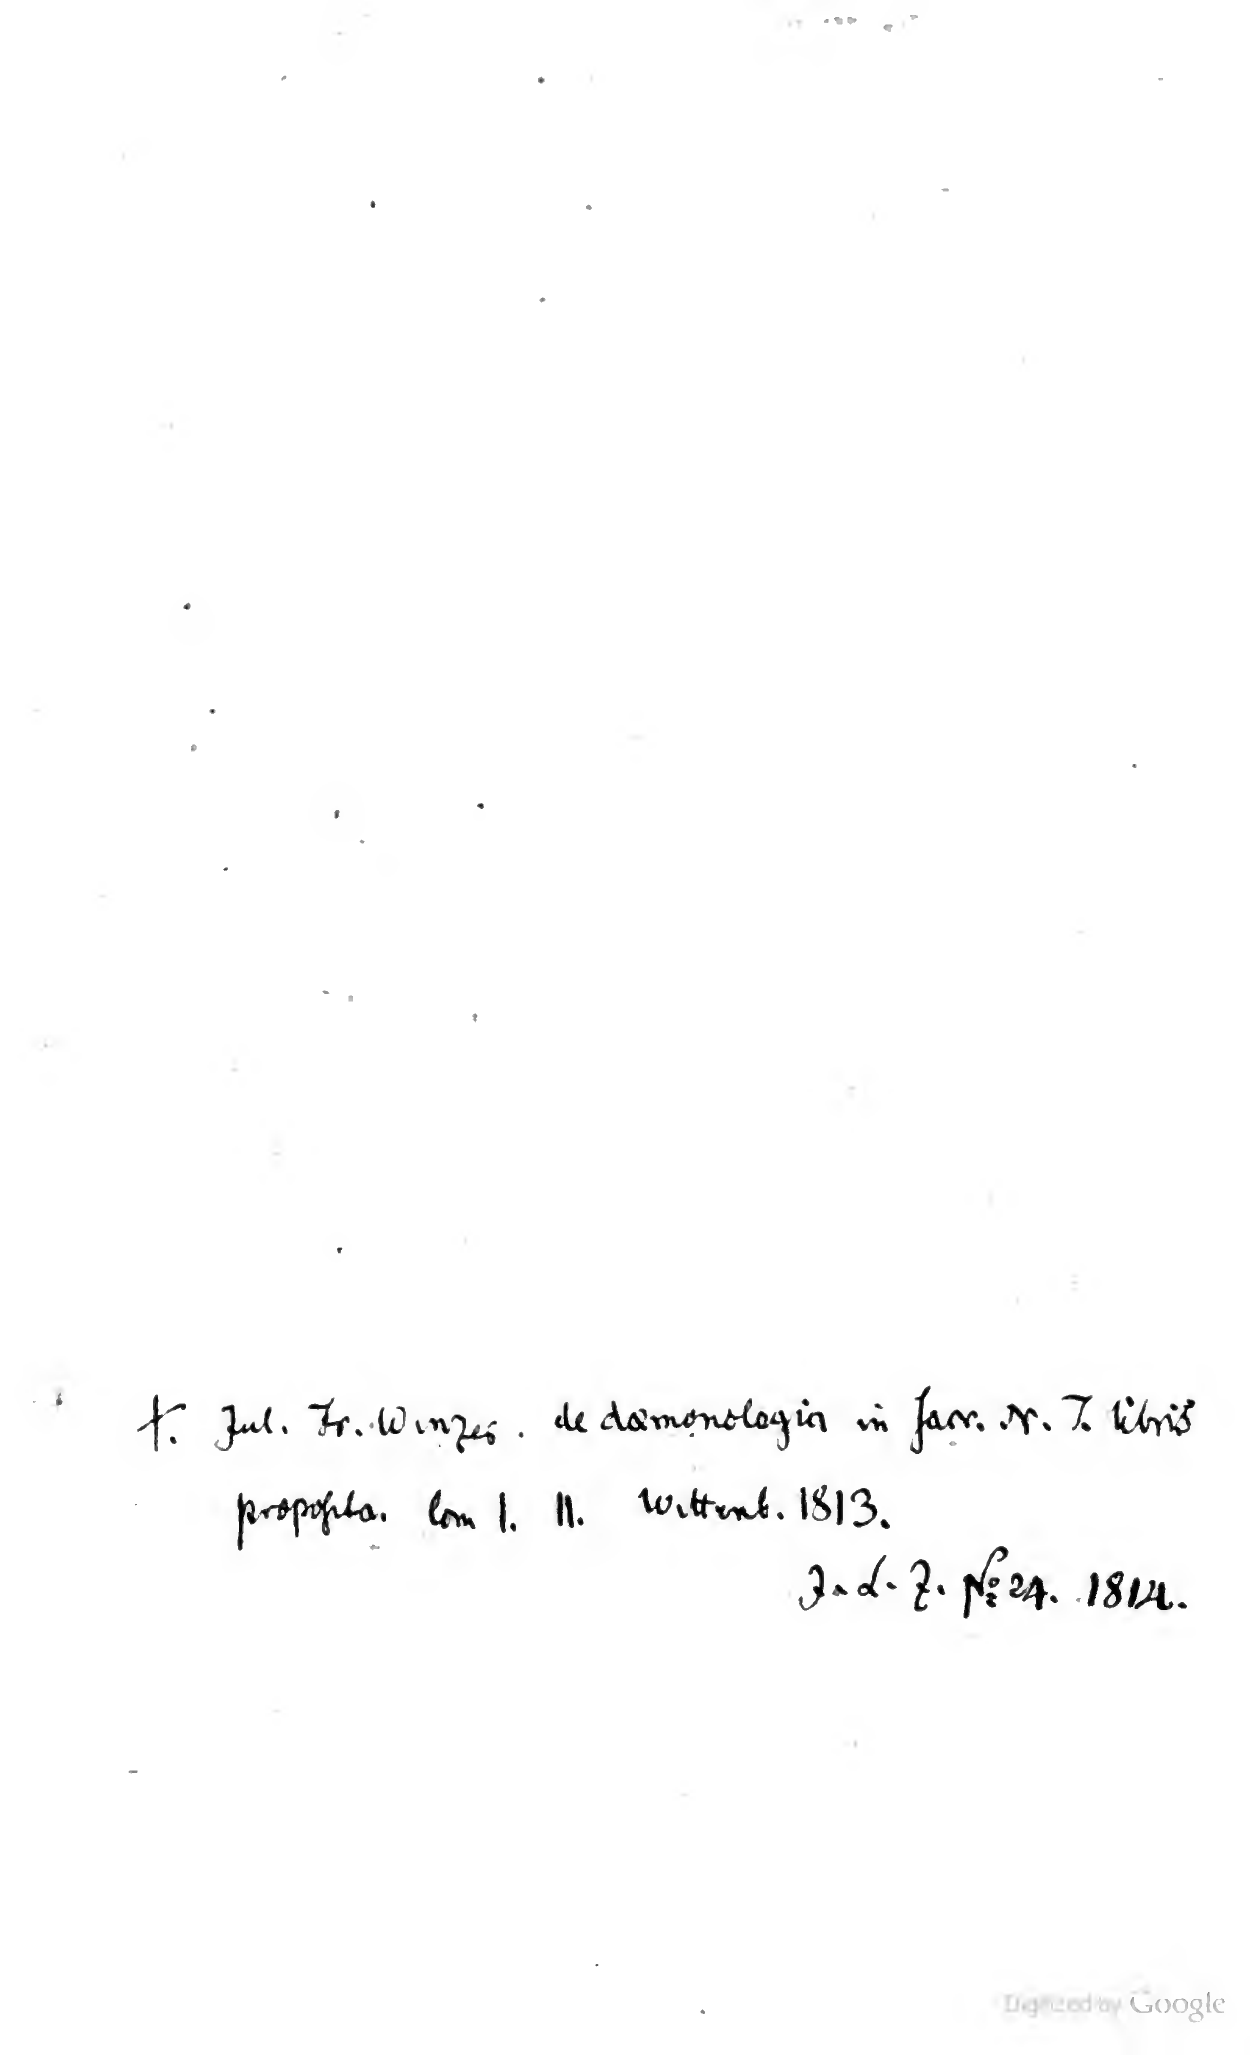 †. Jul. Fr. Winzer. de dæmonologia in ſacr. N. T. libris
propoſita. Com I. II. Wittenb. 1813.
J. L. Z. No 24. 1814.
Digitized by Google